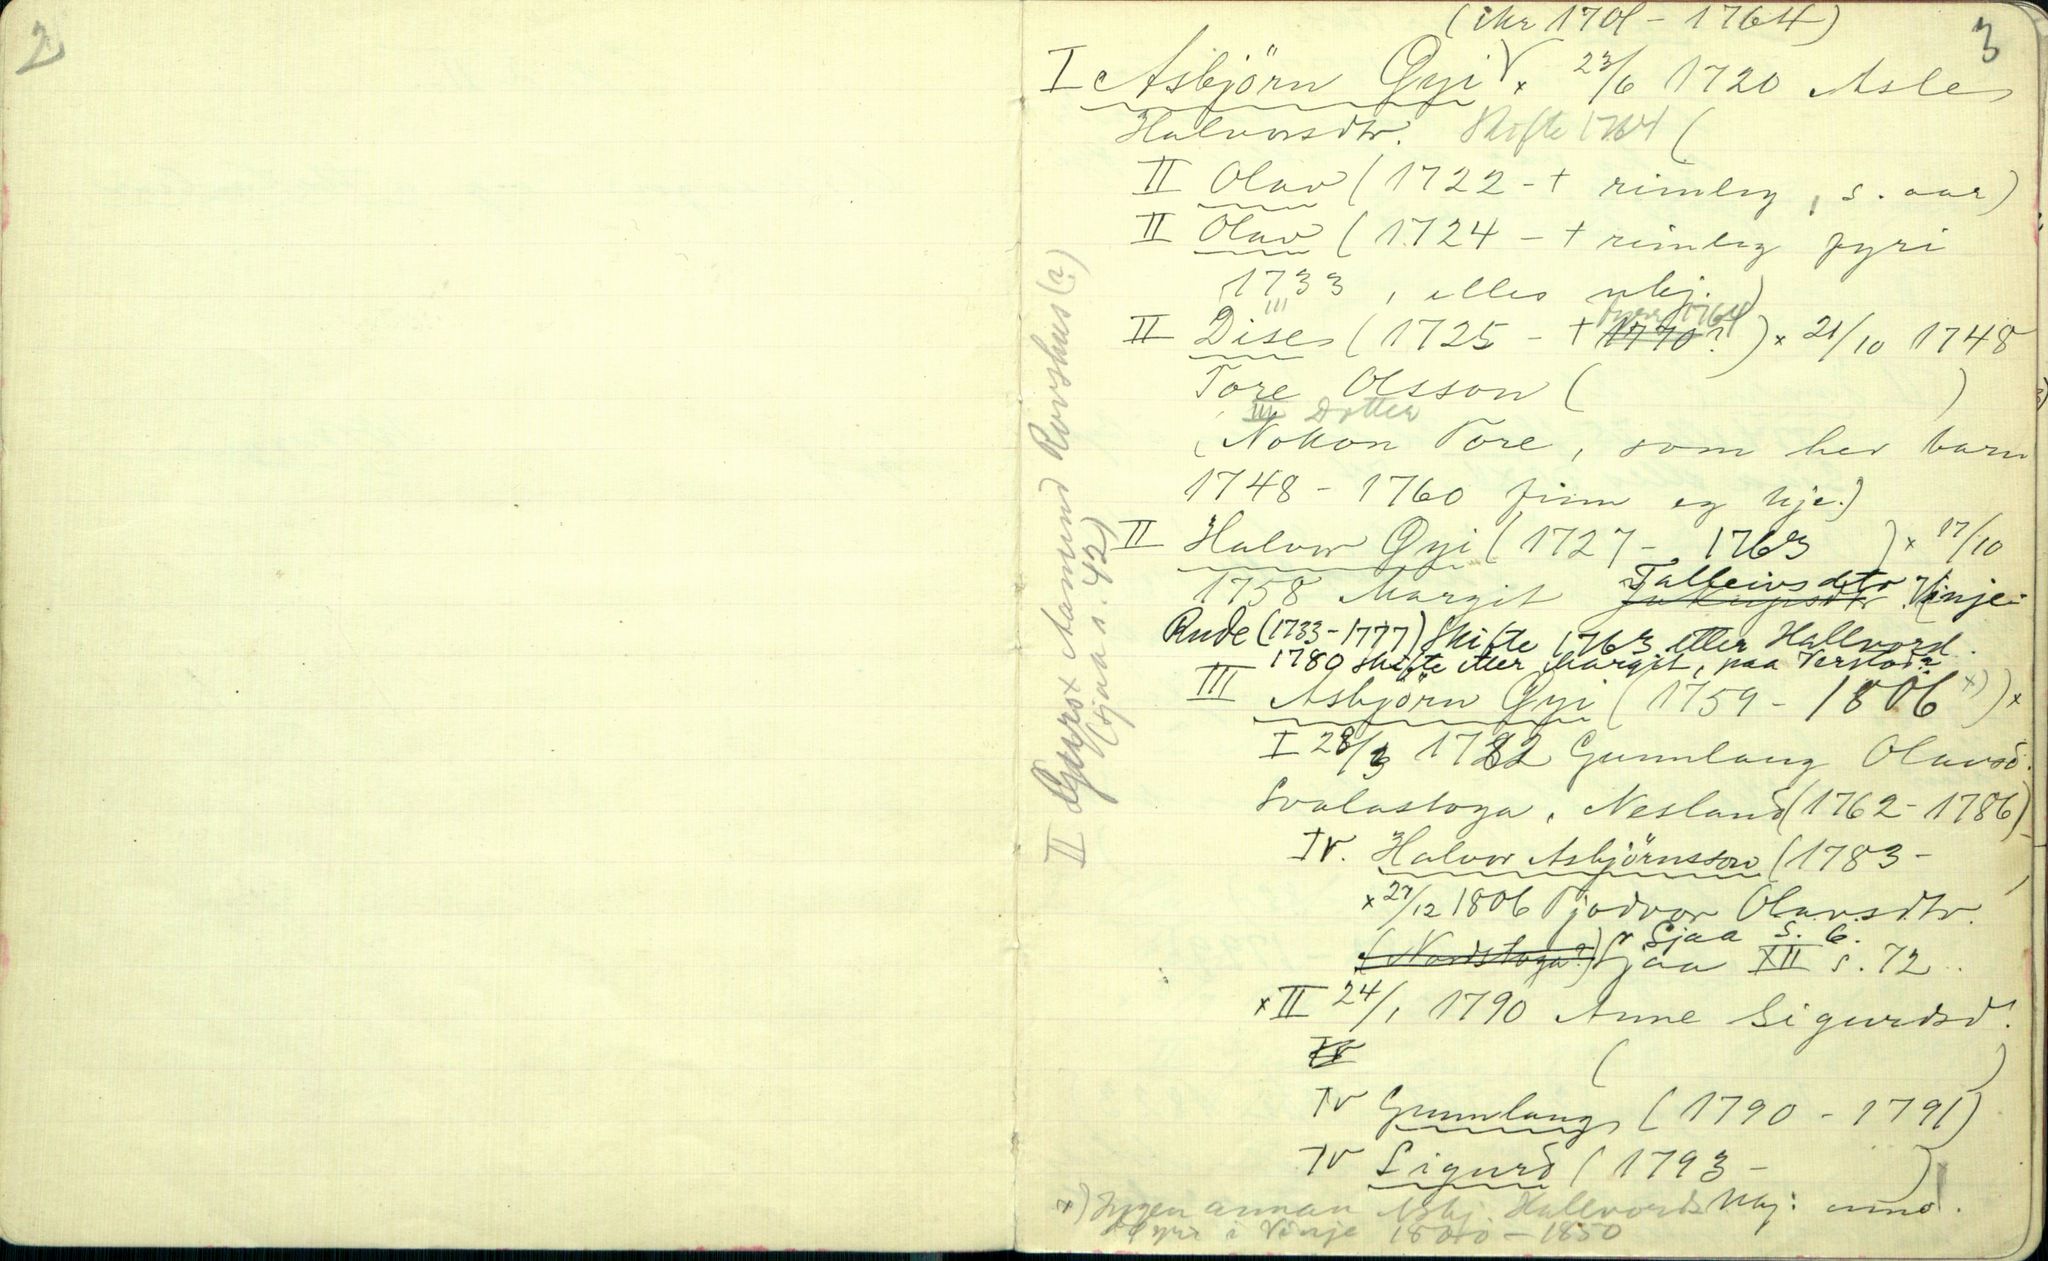 2
3
(ikr 1701 - 1764)
I Asbjörn Øyi x 23/6 1720 Asle
Halvorsdtr. Skifte 1764 (
II Olav (1722 - + rimleg, s. aar)
II Olav (1724 - + rimleg fyri
1733, elles ukj.)
III
II Dise (1725 - + 1770? fyrr 1764) x 21/10 1748
Tore Olsson ( )
III Dotter
(Nokon Tore, som hev barn
1748 - 1760 finn eg kje.)
II Halvor Øyi (1727 - 1763) x 17/10
1758 Margit Talleivsdtr Vinje-
Rude (1733-1777) Skifte 1763 etter Hallvord.
1780 skifte etter Margit, paa
III Asbjörn Øyi (1759 - 1806 x)) x
I 28/3 1782 Gunnlaug Olavsd.
Svalastoga, Nesland (1762-1786)
IV. Halvor Asbjörnsson (1783 -
x 27/12 1806 Tjodvor Olavsdtr.
(Nordstoga?) Sjaa S. 6.
Sjaa XII s. 72.
x II 24/1 1790 Anne Sigurdsd.
IV ( )
IV Gunnlaug (1790 - 1791)
IV Sigurd (1793 - )
Ukj: anno.
x) Ingen annan Asbj. Hallvords
Øyri i Vinje 1800 - 1850
II Gyro x Aamund Rovshus (?)
(sjaa s. 42)